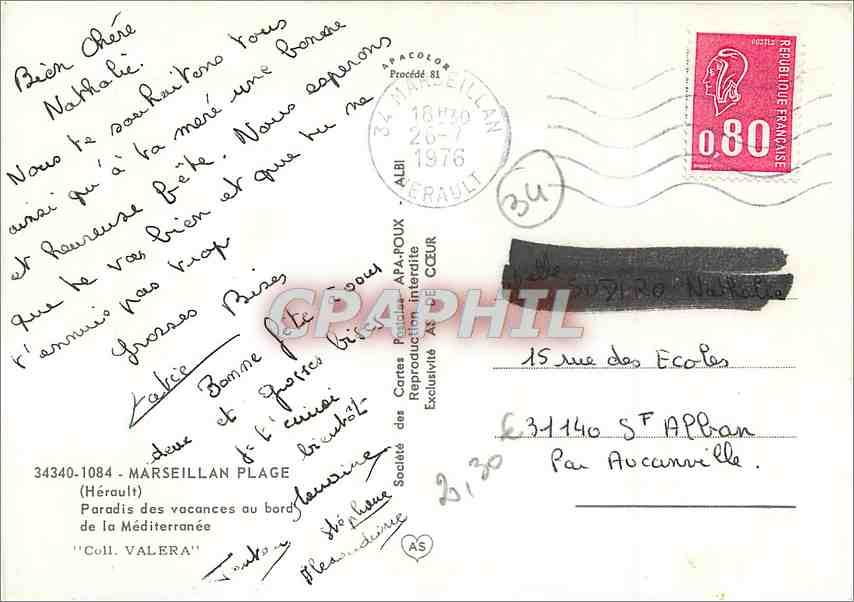 Bien Chére
Nathalie.
Nous te souhaitons tous
ainsi qu'à ta meré une bonne
et heureuse fête. Nous esperons
que te vas bien et que tu ne
t'ennuis pas trop
Grosses Bises
Bonne fête à vous
deux et grosses bises
à bientôt
Tonton
Stéphane
34340-1084 - MARSEILLAN PLAGE
(Hérault)
Paradis des vacances au bord
de la Méditerranée
"Coll. VALERA"
APACOLOR
Procédé 81
Société des Cartes Postales APA-POUX - ALBI
Reproduction interdite
Exclusivité AS DE CŒUR
AS
34 MARSEILLAN
18H30
26-7
1976
HERAULT
POSTES
REPUBLIQUE FRANÇAISE
0,80
34
Nathalie
15 rue des Ecoles
31140 St Alban
Par Aucanville.
2,30
CPAPHIL